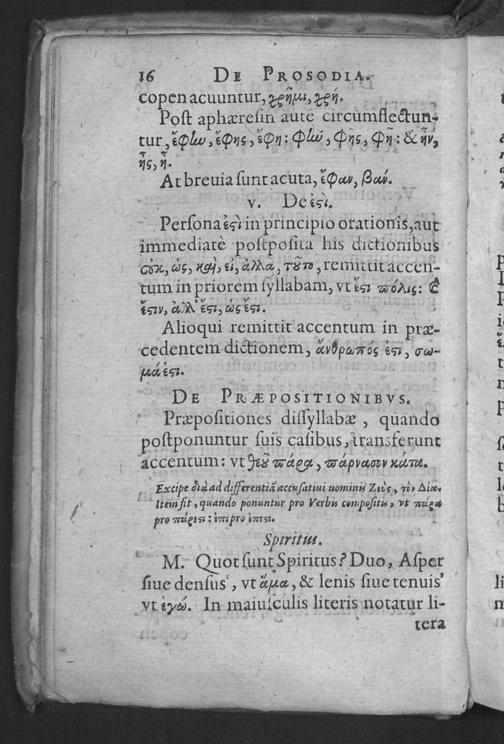 16 DE PROSODIA.
copen acuuntur, χρῆμι, χρή.
Post aphæresin autē circumflectun-
tur, ἔφην, ἔφης, ἔφη: φῆν, φῆς, φῆ: & ἦν,
ἦς, ἦ.
At breuia sunt acuta, ἔφαν, βάν.
V. De ἐστι.
Persona ἐστὶ in principio orationis, aut
immediatè postposita his dictionibus
οὐκ, ὡς, καὶ, εἰ, ἀλλὰ, τοῦτο, remittit accen-
tum in priorem syllabam, vt ἔστι πόλις: οὐκ
ἔστιν, ἀλλ' ἔστι, ὡς ἔστι.
Alioqui remittit accentum in præ-
cedentem dictionem, ἄνθρωπός ἐστι, σω-
μά ἐστι.
DE PRÆPOSITIONIBVS.
Præpositiones dissyllabæ, quando
postponuntur suis casibus, transferunt
accentum: vt θεοῦ πάρα, πάρνασον κάτα.
Excipe διὰ ad differentiā accusatiui nominis Ζεὺς, τὸν Δία.
Item sit, quando ponuntur pro Verbis compositis, vt πάρα
pro πάρεστι: ἔπι pro ἔπεστι.
Spiritus.
M. Quot sunt Spiritus? Duo, Asper
siue densus, vt ἅμα, & lenis siue tenuis
vt ἐγώ. In maiusculis literis notatur li-
tera